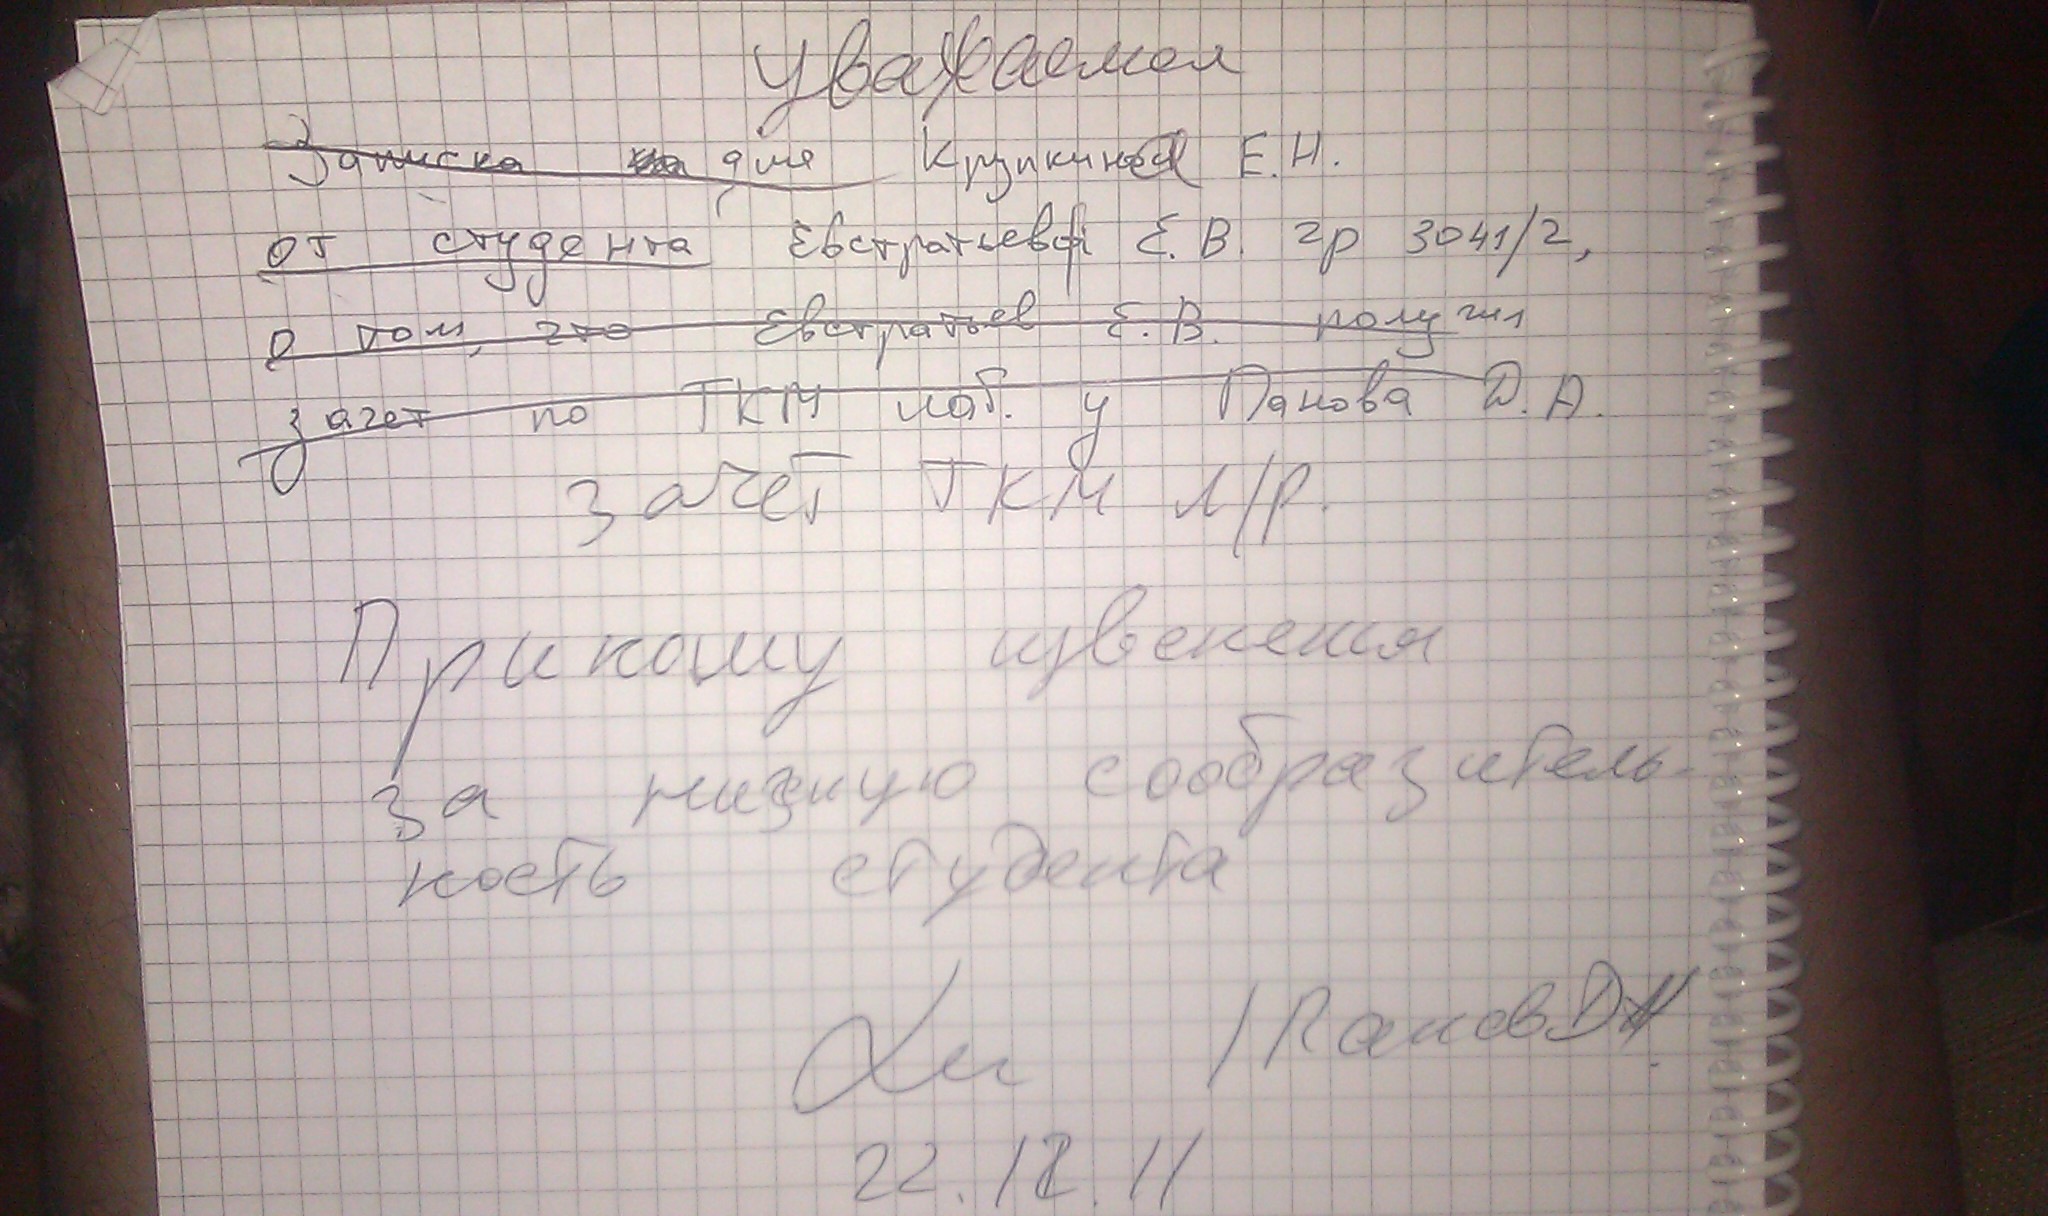 Уважаемая
Записка для Крупкиной Е.Н.
от студента Евстратьева Е.В. гр 3041/2,
о том, что Евстратьев Е.В. получил
зачет по ТКМ лаб. у Панова Д.А.
зачет ТКМ л/р.
Приношу извенения
за низкую сообразитель-
ность студента
/Панов Д.А.
22.12.11